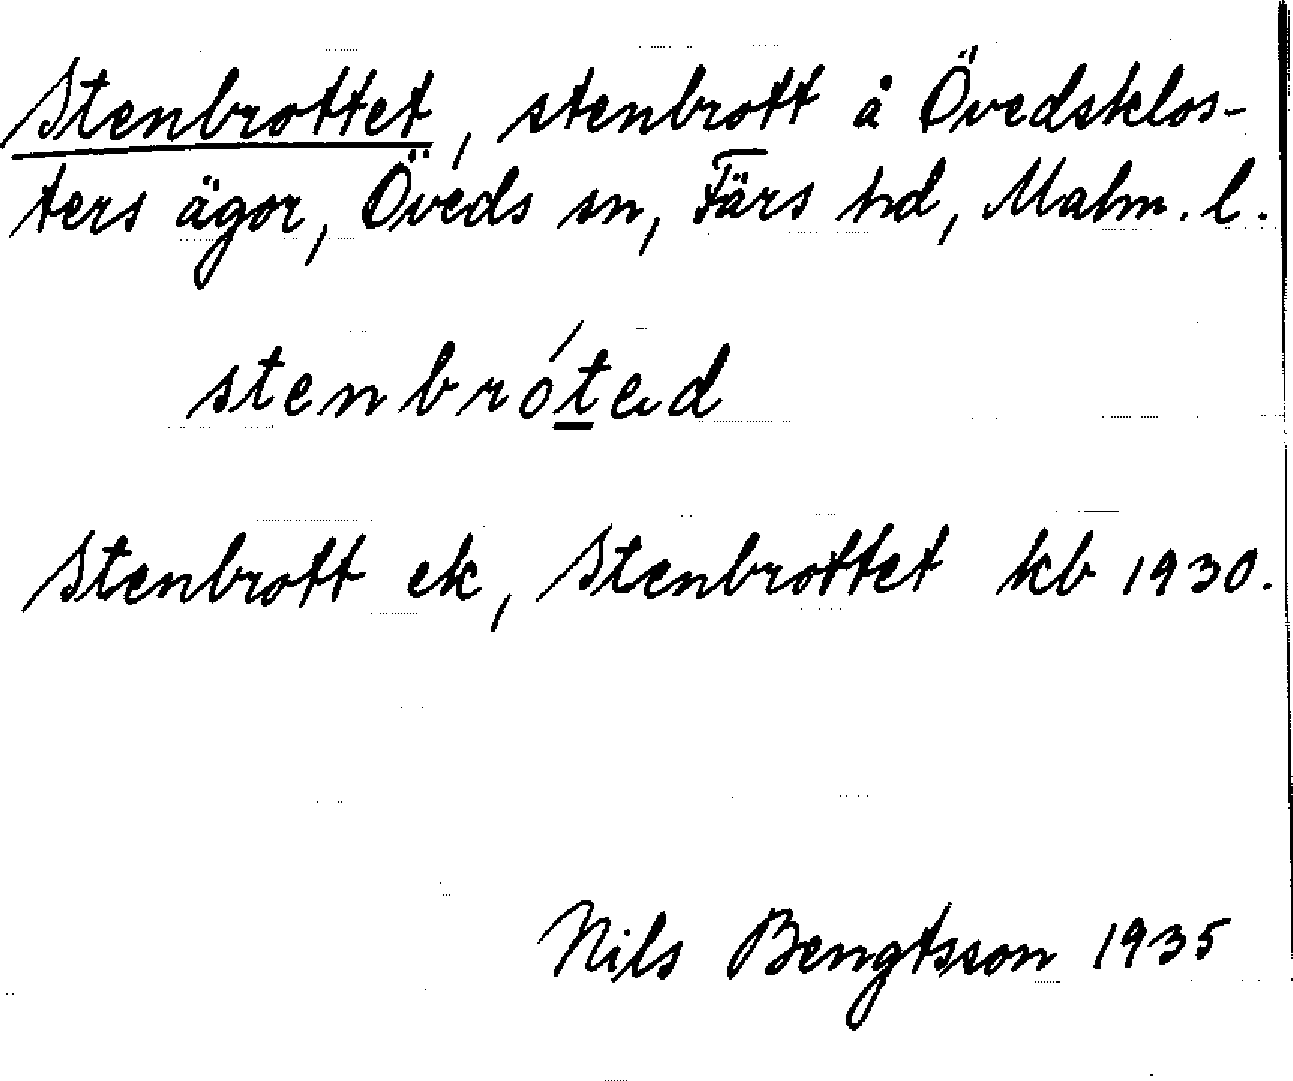 Stenbrottet, stenbrott å Övedsklos-
ters ägor, Öveds sn, Färs hd, Malm. l.
stenbróted
Stenbrott ek, Stenbrottet kb 1930.
Nils Bengtsson 1935